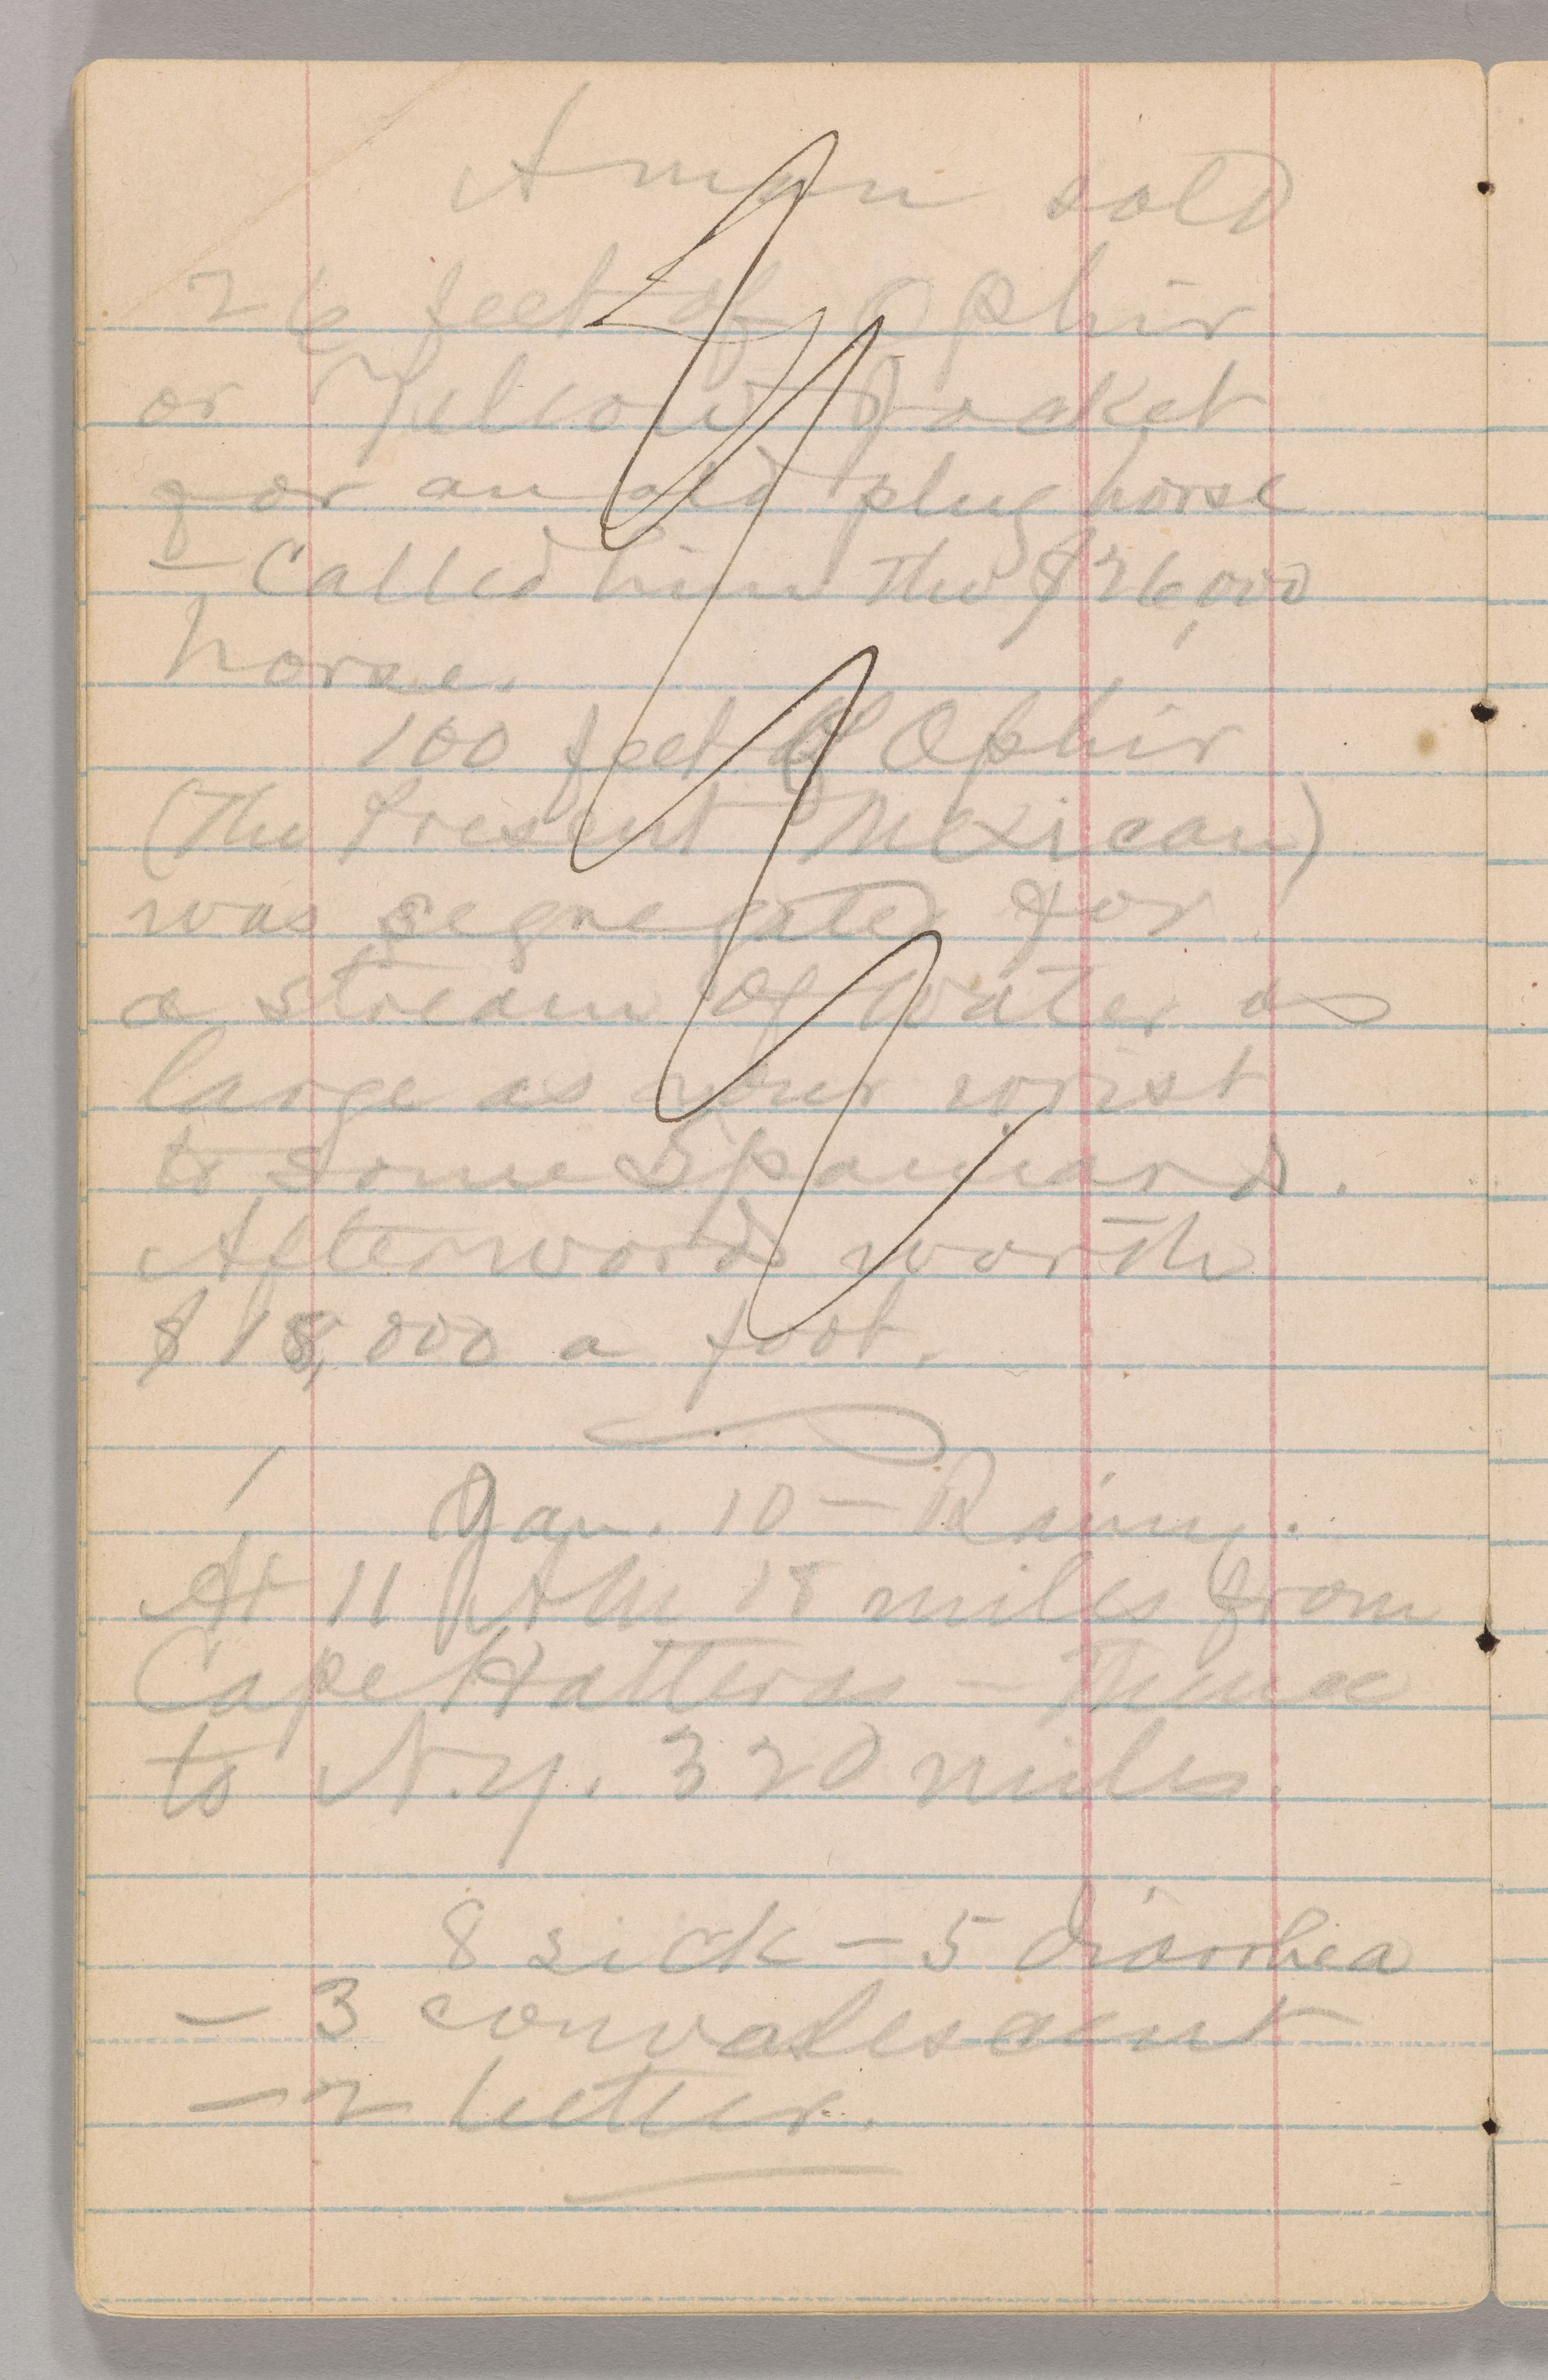 A man sold
26 feet of Ophir
or Yellow Jacket
for an old plug horse
– Called him the $26,000
horse.
100 feet of Ophir
(the present Mexican)
was segregated for
a stream of water as
large as your wrist
to some Spaniards.
Afterwards worth
$18,000 a foot.
Jan. 10 – Rainy.
At 11 AM 18 miles from
Cape Hatteras – Thence
to N.Y. 320 miles.
8 sick – 5 diarrhea
– 3 convalescent
– 2 better.